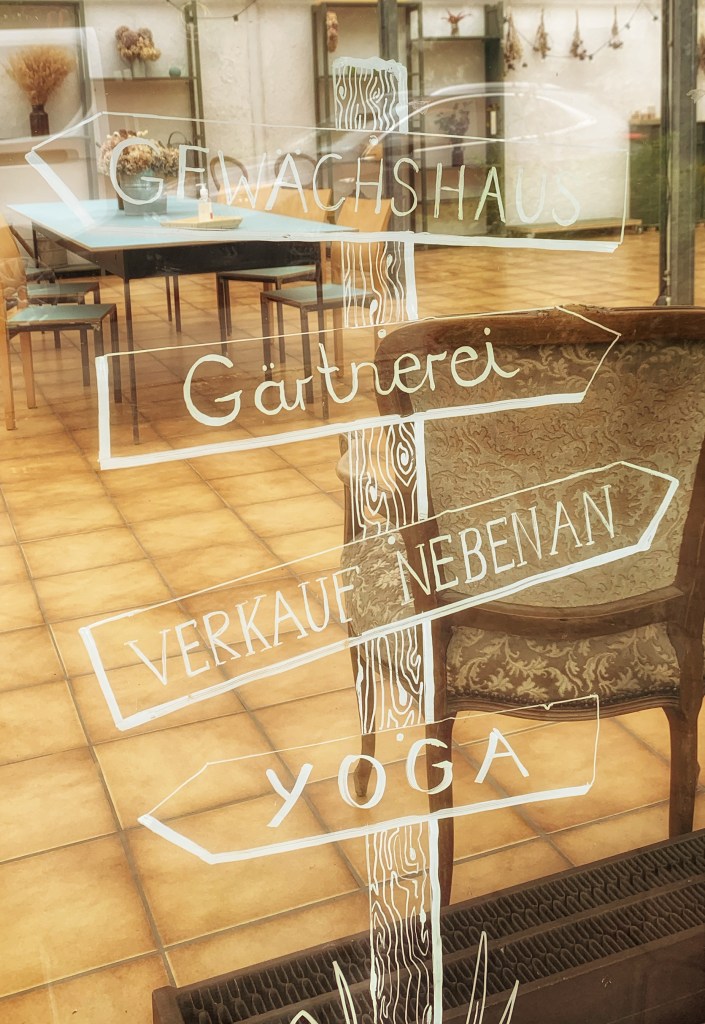 GEWÄCHSHAUS
Gärtnerei
VERKAUF NEBENAN
YOGA